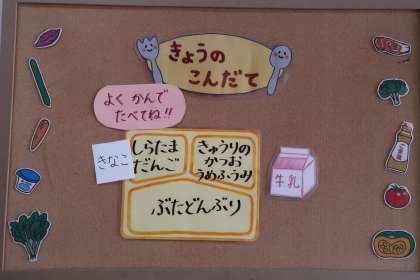 きょうの
こんだて
よく かんで
たべてね!!
きなこ
しらたま
だんご
きゅうりの
かつお
うめふうみ
ぶたどんぶり
牛乳